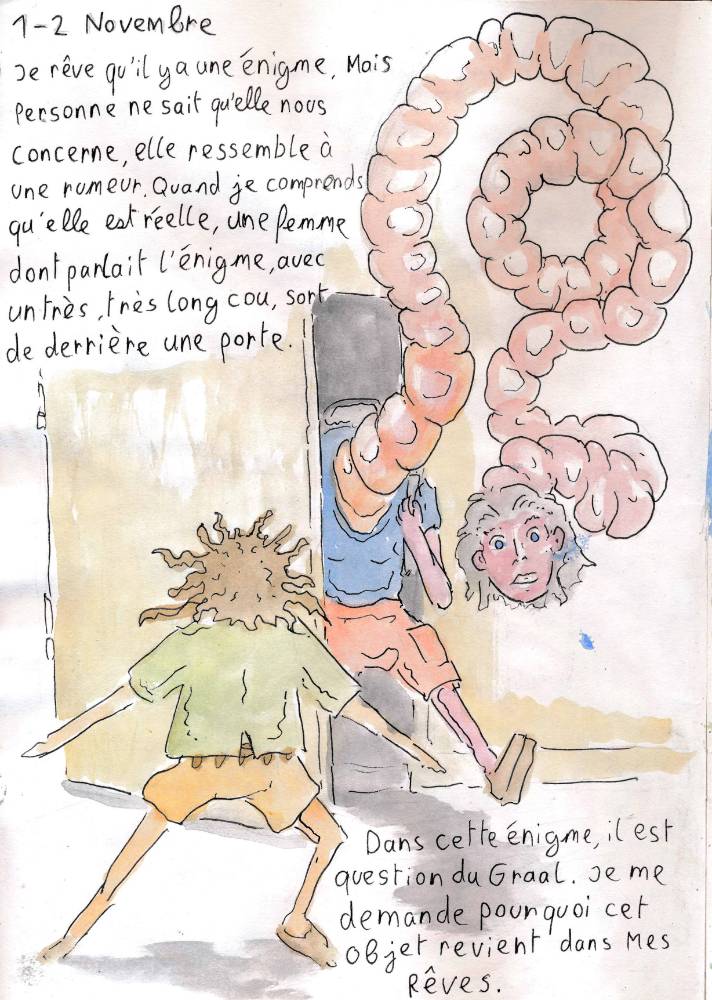 1-2 Novembre
Je rêve qu'il y a une énigme, Mais
Personne ne sait qu'elle nous
concerne, elle ressemble à
une rumeur. Quand je comprends
qu'elle est réelle, une femme
dont parlait l'énigme, avec
un très, très long cou, sort
de derrière une porte.
Dans cette énigme, il est
question du Graal. Je me
demande pourquoi cet
objet revient dans mes
Rêves.